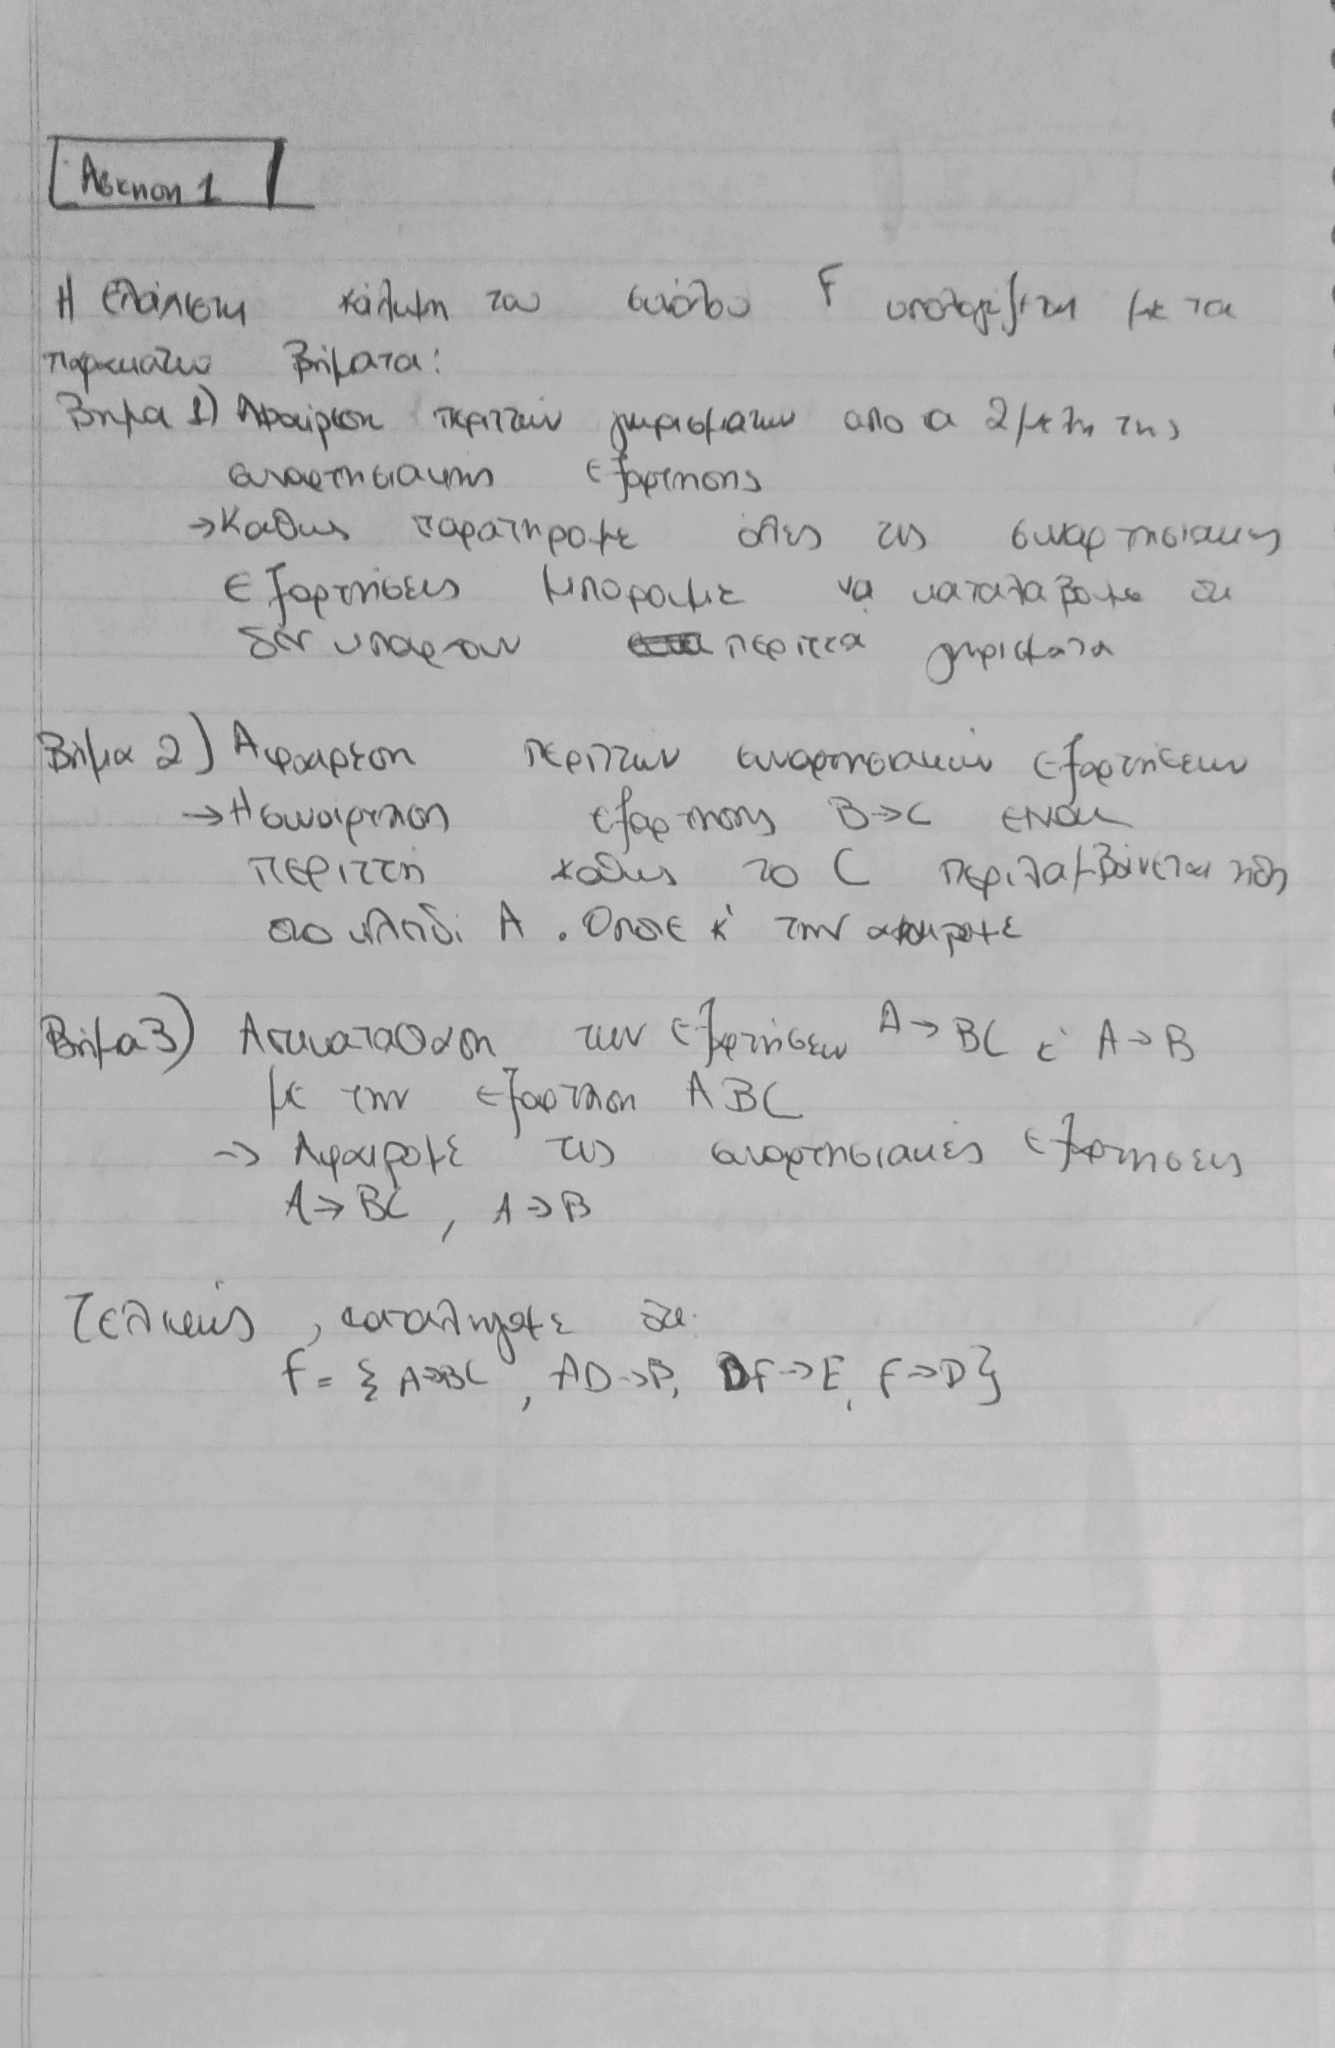 Άσκηση 1
Η ελάχιστη κάλυψη του συνόλου F υπολογίζεται με τα
παρακάτω βήματα:
Βημα 1) Αφαίρεση περιττών γνωρισμάτων απο τα 2 μέλη της
συναρτησιακης εξαρτησης
→ Καθως παρατηρουμε όλες τις συναρτησιακες
εξαρτησεις μπορουμε να καταλαβουμε ότι
δεν υπαρχουν περιττα γνωρισματα
Βήμα 2) Αφαιρεση περιττων συναρτησιακων εξαρτησεων
→ Η συνάρτηση εξαρτησης B→C ειναι
περιττη καθως το C περιλαμβάνεται ηδη
στο κλειδι A. Οποτε κ' την αφαιρουμε
Βήμα 3) Αντικατασταση των εξαρτήσεων A→BC κ' A→B
με την εξαρτηση ABC
→ Αφαιρουμε τις συναρτησιακές εξαρτησεις
A→BC, A→B
Τελικώς, καταληγουμε ότι:
F = { A→BC, AD→B, DF→E, F→D}